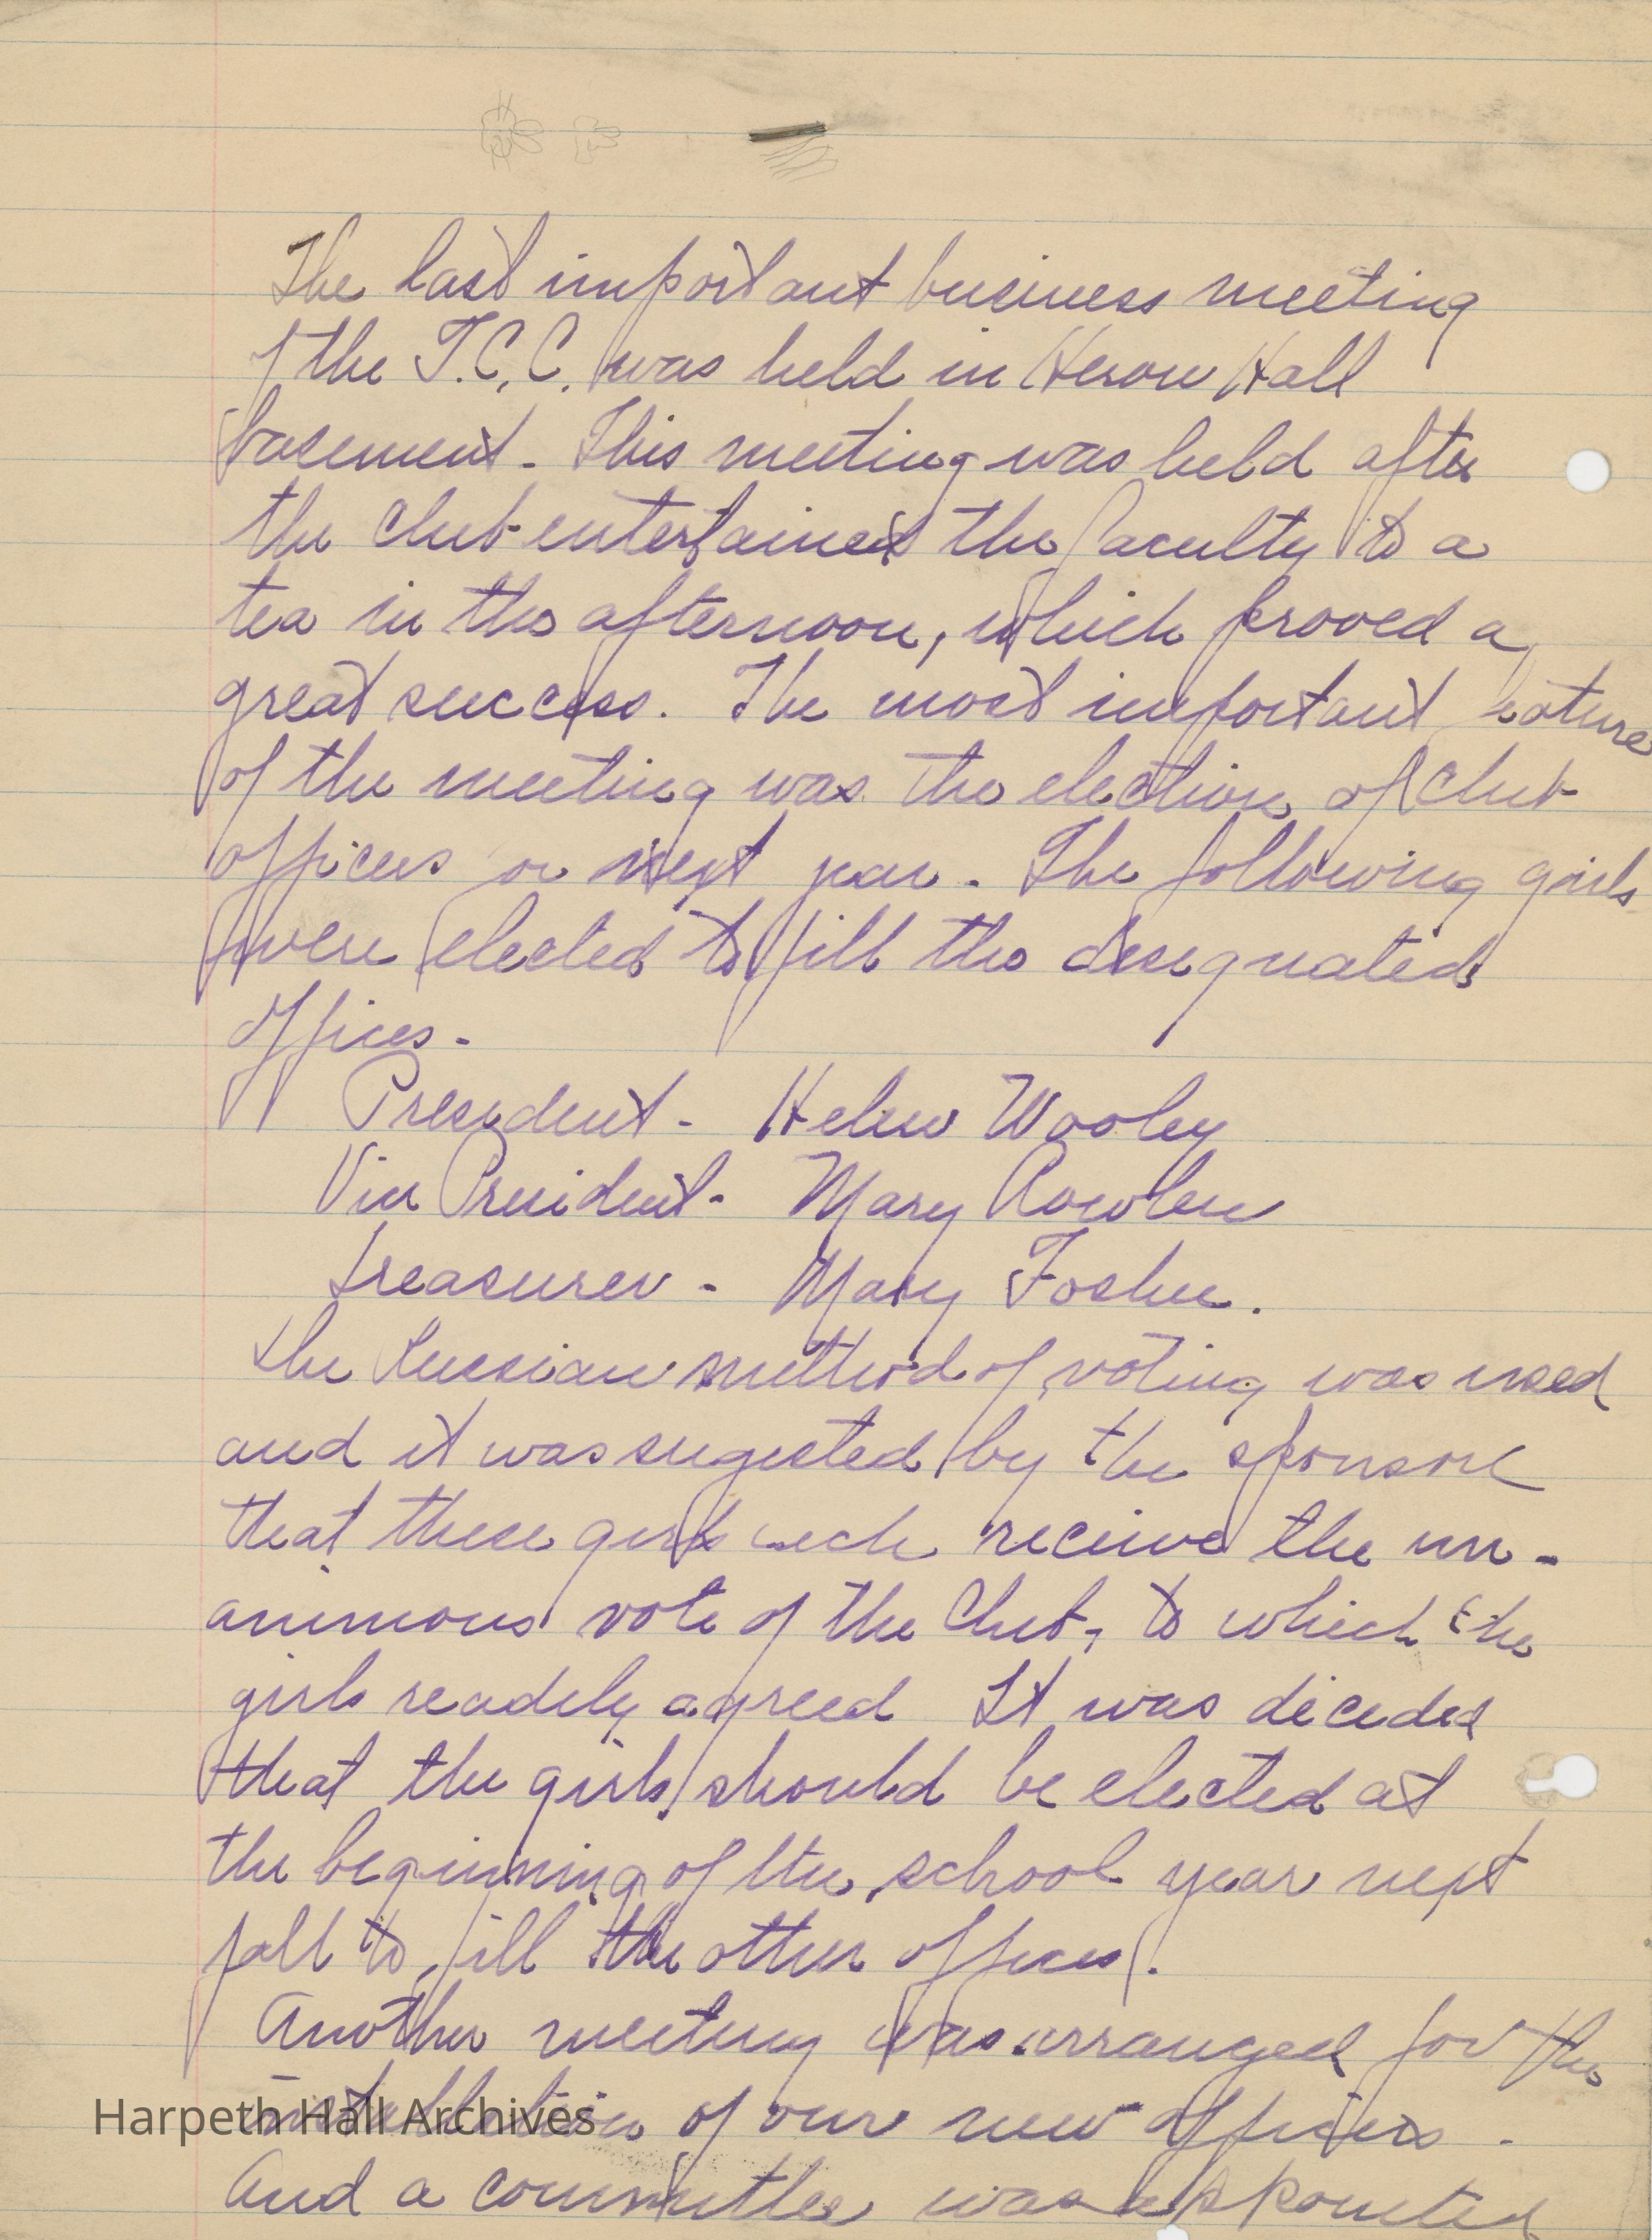 The last important business meeting
of the T.C.C. was held in Heron Hall
basement. This meeting was held after
the club entertained the faculty to a
tea in the afternoon, which proved a
great success. The most important feature
of the meeting was the election of club
officers for next year. The following girls
were elected to fill the designated
offices -
President - Helen Wooley
Vice President - Mary Rowlen
Treasurer - Mary Foshee.
The Russian method of voting was used
and it was sugested by the sponsor
that these girls each receive the un-
animous vote of the Club, to which the
girls readily agreed It was decided
that the girls should be elected at
the beginning of the school year next
fall to fill the other offices.
Another meeting was arranged for the
installation of our new officers.
And a committee was appointed
Harpeth Hall Archives